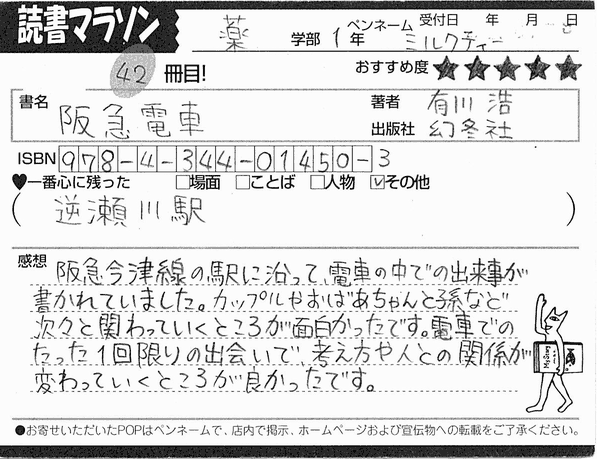 読書マラソン
薬 学部 1年 ペンネーム ミルクティー 受付日 年 月 日
42 冊目! おすすめ度 ★★★★★
書名 阪急電車 著者 有川 浩
出版社 幻冬社
ISBN 978-4-344-01450-3
♥一番心に残った □場面 □ことば □人物 ☑その他
( 逆瀬川駅 )
感想 阪急今津線の駅に沿って、電車の中での出来事が
書かれていました。カップルやおばあちゃんと孫など
次々と関わっていくところが面白かったです。電車での
たった1回限りの出会いで、考え方や人との関係が
変わっていくところが良かったです。
●お寄せいただいたPOPはペンネームで、店内で掲示、ホームページおよび宣伝物への転載をご了承ください。